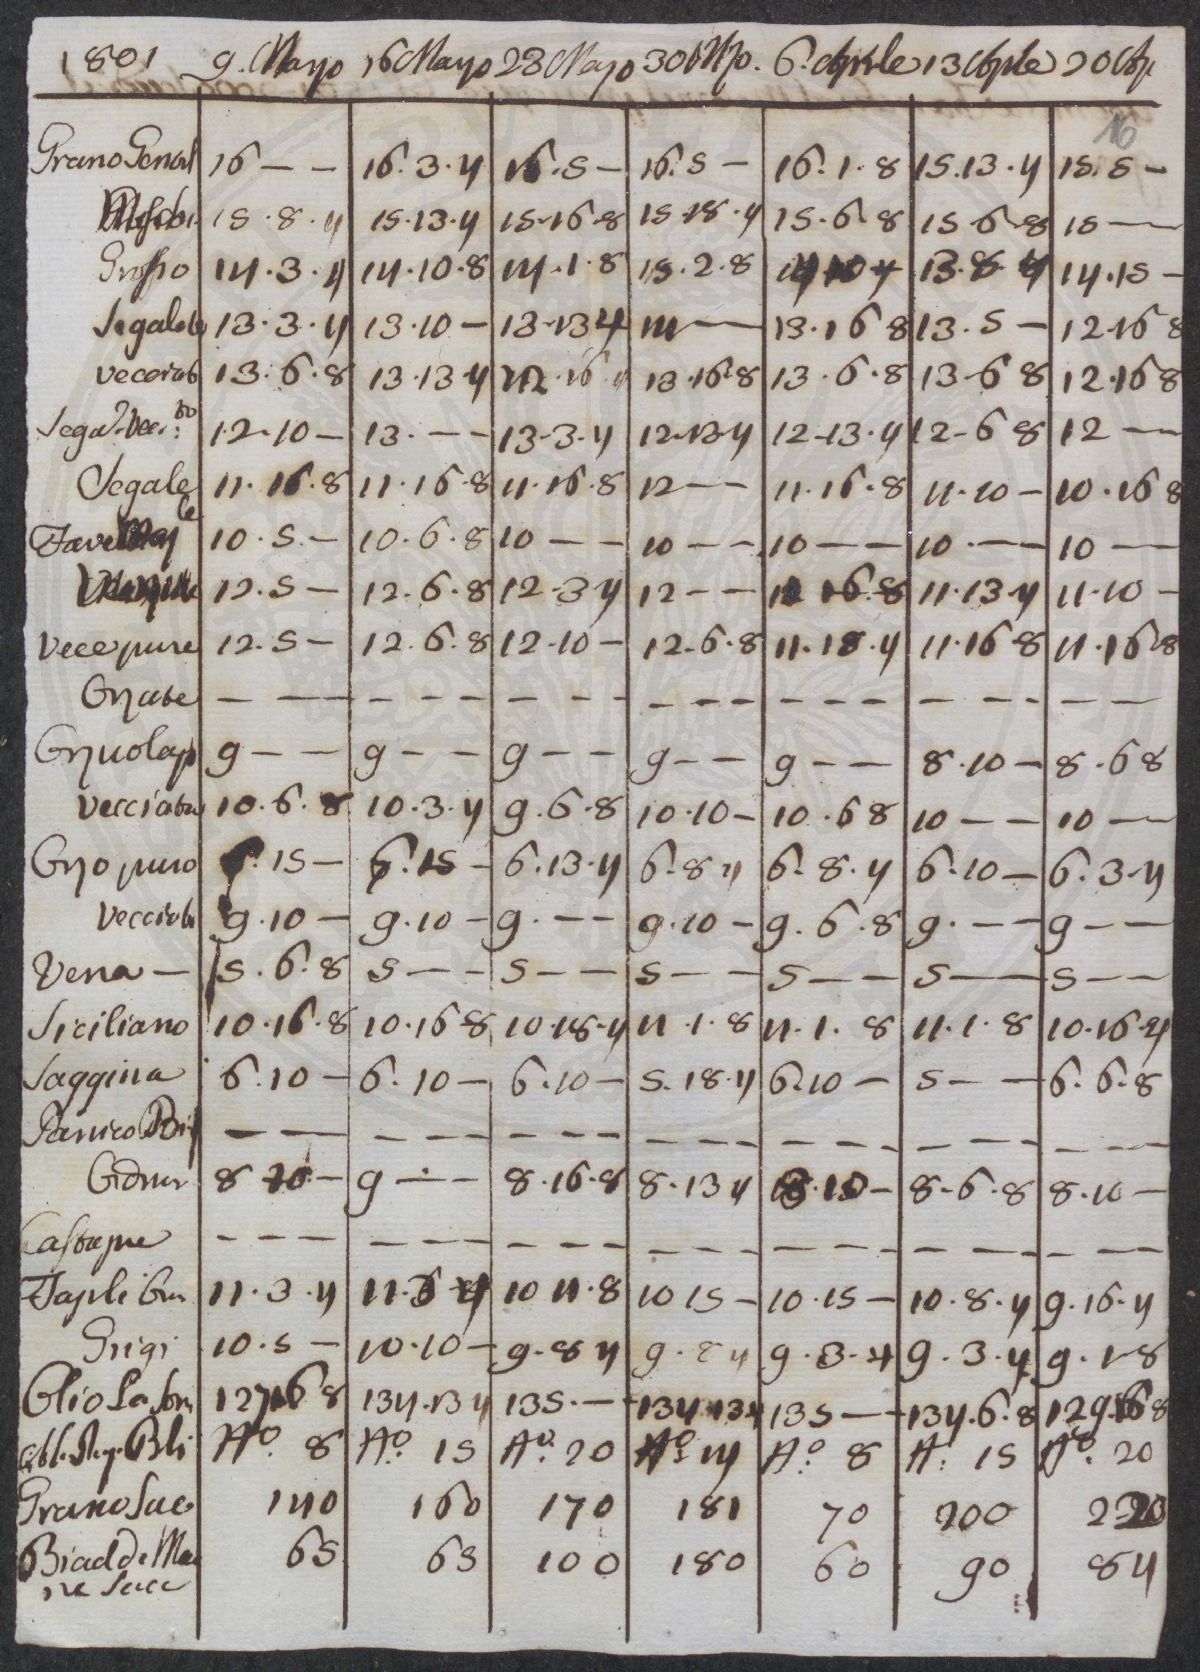 1801 9. Marzo 16 Marzo 23 Marzo 30 Mzo. 6. Aprile 13 Aprle 20 Ap
16
Grano Gentil 16 — — 16. 3. 4 16. 5 — 16. 5 — 16. 1. 8 15. 13. 4 15. 5 —
15. 8. 4 15. 13. 4 15. 16. 8 15 18. 4 15. 6. 8 15 6. 8 15 —
Grosso 14. 3. 4 14. 10. 8 14. 1. 8 15. 2. 8 13. 8. 4 14. 15 —
Segalato 13. 3. 4 13. 10 — 13. 13 4 14 — 13. 16 8 13. 5 — 12. 16 8
vecciato 13. 6. 8 13. 13. 4 12. 16. 4 13. 16. 8 13. 6. 8 13. 6 8 12. 16 8
Sega. Vec.to 12. 10 — 13. — — 13. 3. 4 12. 13. 4 12. 13. 4 12. 6 8 12 —
Segale 11. 16. 8 11. 16. 8 11. 16. 8 12 — — 11. 16. 8 11. 10 — 10. 16 8
Fave 10. 5. — 10. 6. 8 10 — — 10 — — 10 — — 10. — — 10 —
12. 5 — 12. 6. 8 12. 3 4 12 — — 11. 13. 4 11. 10 —
Vecce pure 12. 5 — 12. 6. 8 12. 10 — 12. 6. 8 11. 18. 4 11. 16 8 11. 16 8
Orzate — — — — — — — — — — — — — — — — — —
Orzuola 9 — — 9 — — 9 — — 9 — — 9 — — 8. 10 — 8. 6 8
vecciata 10. 6. 8 10. 3. 4 9. 6. 8 10. 10 — 10. 6 8 10 — — 10 —
Orzo puro 6. 15 — 6. 15 — 6. 13. 4 6. 8 4 6. 8. 4 6. 10 — 6. 3. 4
Vecciato 9. 10 — 9. 10 — 9. — — 9. 10 — 9. 6. 8 9. — — 9 — —
Vena — 5. 6. 8 5 — — 5 — — 5 — — 5 — — 5 — 5 — —
Siciliano 10. 16. 8 10. 16 8 10. 18. 4 11. 1. 8 11. 1. 8 11. 1. 8 10. 16. 4
Saggina 6. 10 — 6. 10 — 6. 10 — 5. 18. 4 6. 10 — 5 — — 6. 6. 8
Panico — — — — — — — — — — — — — — — — — — —
8 10. — 9 — — 8. 16. 8 8. 13 4 8. 10 — 8. 6. 8 8. 10 —
Castagne — — — — — — — — — — — — — — — — — — —
11. 3. 4 10 11. 8 10 15 — 10. 15 — 10. 8. 4 9. 16. 4
Grigi 10. 5 — 10. 10 — 9. 8 4 9. 8 4 9. 3. 4 9. 3. 4 9. 1. 8
Olio La Som 127 16 8 134. 13 4 135. — 134 13 4 135 — 134. 6. 8 129. 16 8
A°. 8 A°. 15 A°. 20 A°. 14 A°. 8 A°. 15 A°. 20
Grano Sac. 140 160 170 181 70 200 220
Biad di Ma 65 65 100 180 60 90 84
ne Sacc